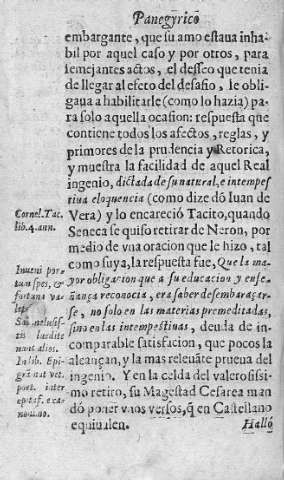 Panegyrico
embargante, que su amo estaua inha-
bil por aquel caso y por otros, para
semejantes actos, el desseo que tenia
de llegar al efeto del desafio, le obli-
gaua a habilitarle (como lo hazia) pa
ra solo aquella ocasion: respuesta que
contiene todos los afectos, reglas, y
primores de la prudencia y Retorica,
y muestra la facilidad de aquel Real
ingenio, dictada de su natural, e intempes
tiua eloquencia (como dize dō Iuan de
Vera) y lo encareció Tacito, quando
Seneca se quiso retirar de Neron, por
medio de vna oracion que le hizo, tal
como suya, la respuesta fue, Que la ma-
yor obligacion que a su educacion y ense-
ñança reconocia, era saber desembaraçar-
se, no solo en las materias premeditadas,
sino en las intempestiuas, deuda de in-
comparable satisfacion, que pocos la
alcançan, y la mas releuāte prueua del
ingenio. Y en la celda del valerosissi-
mo retiro, su Magestad Cesarea man
dó poner vnos versos, q̄ en Castellano
equiualen.
Halló
Cornel. Tac.
lib. 4. ann.
Inueni por-
tum spes, &
fortuna va-
lete
Sat me lusis-
tis ludite
nunc alios.
In lib. Epi-
grāmat vet.
poet. inter
epitaf. & ca-